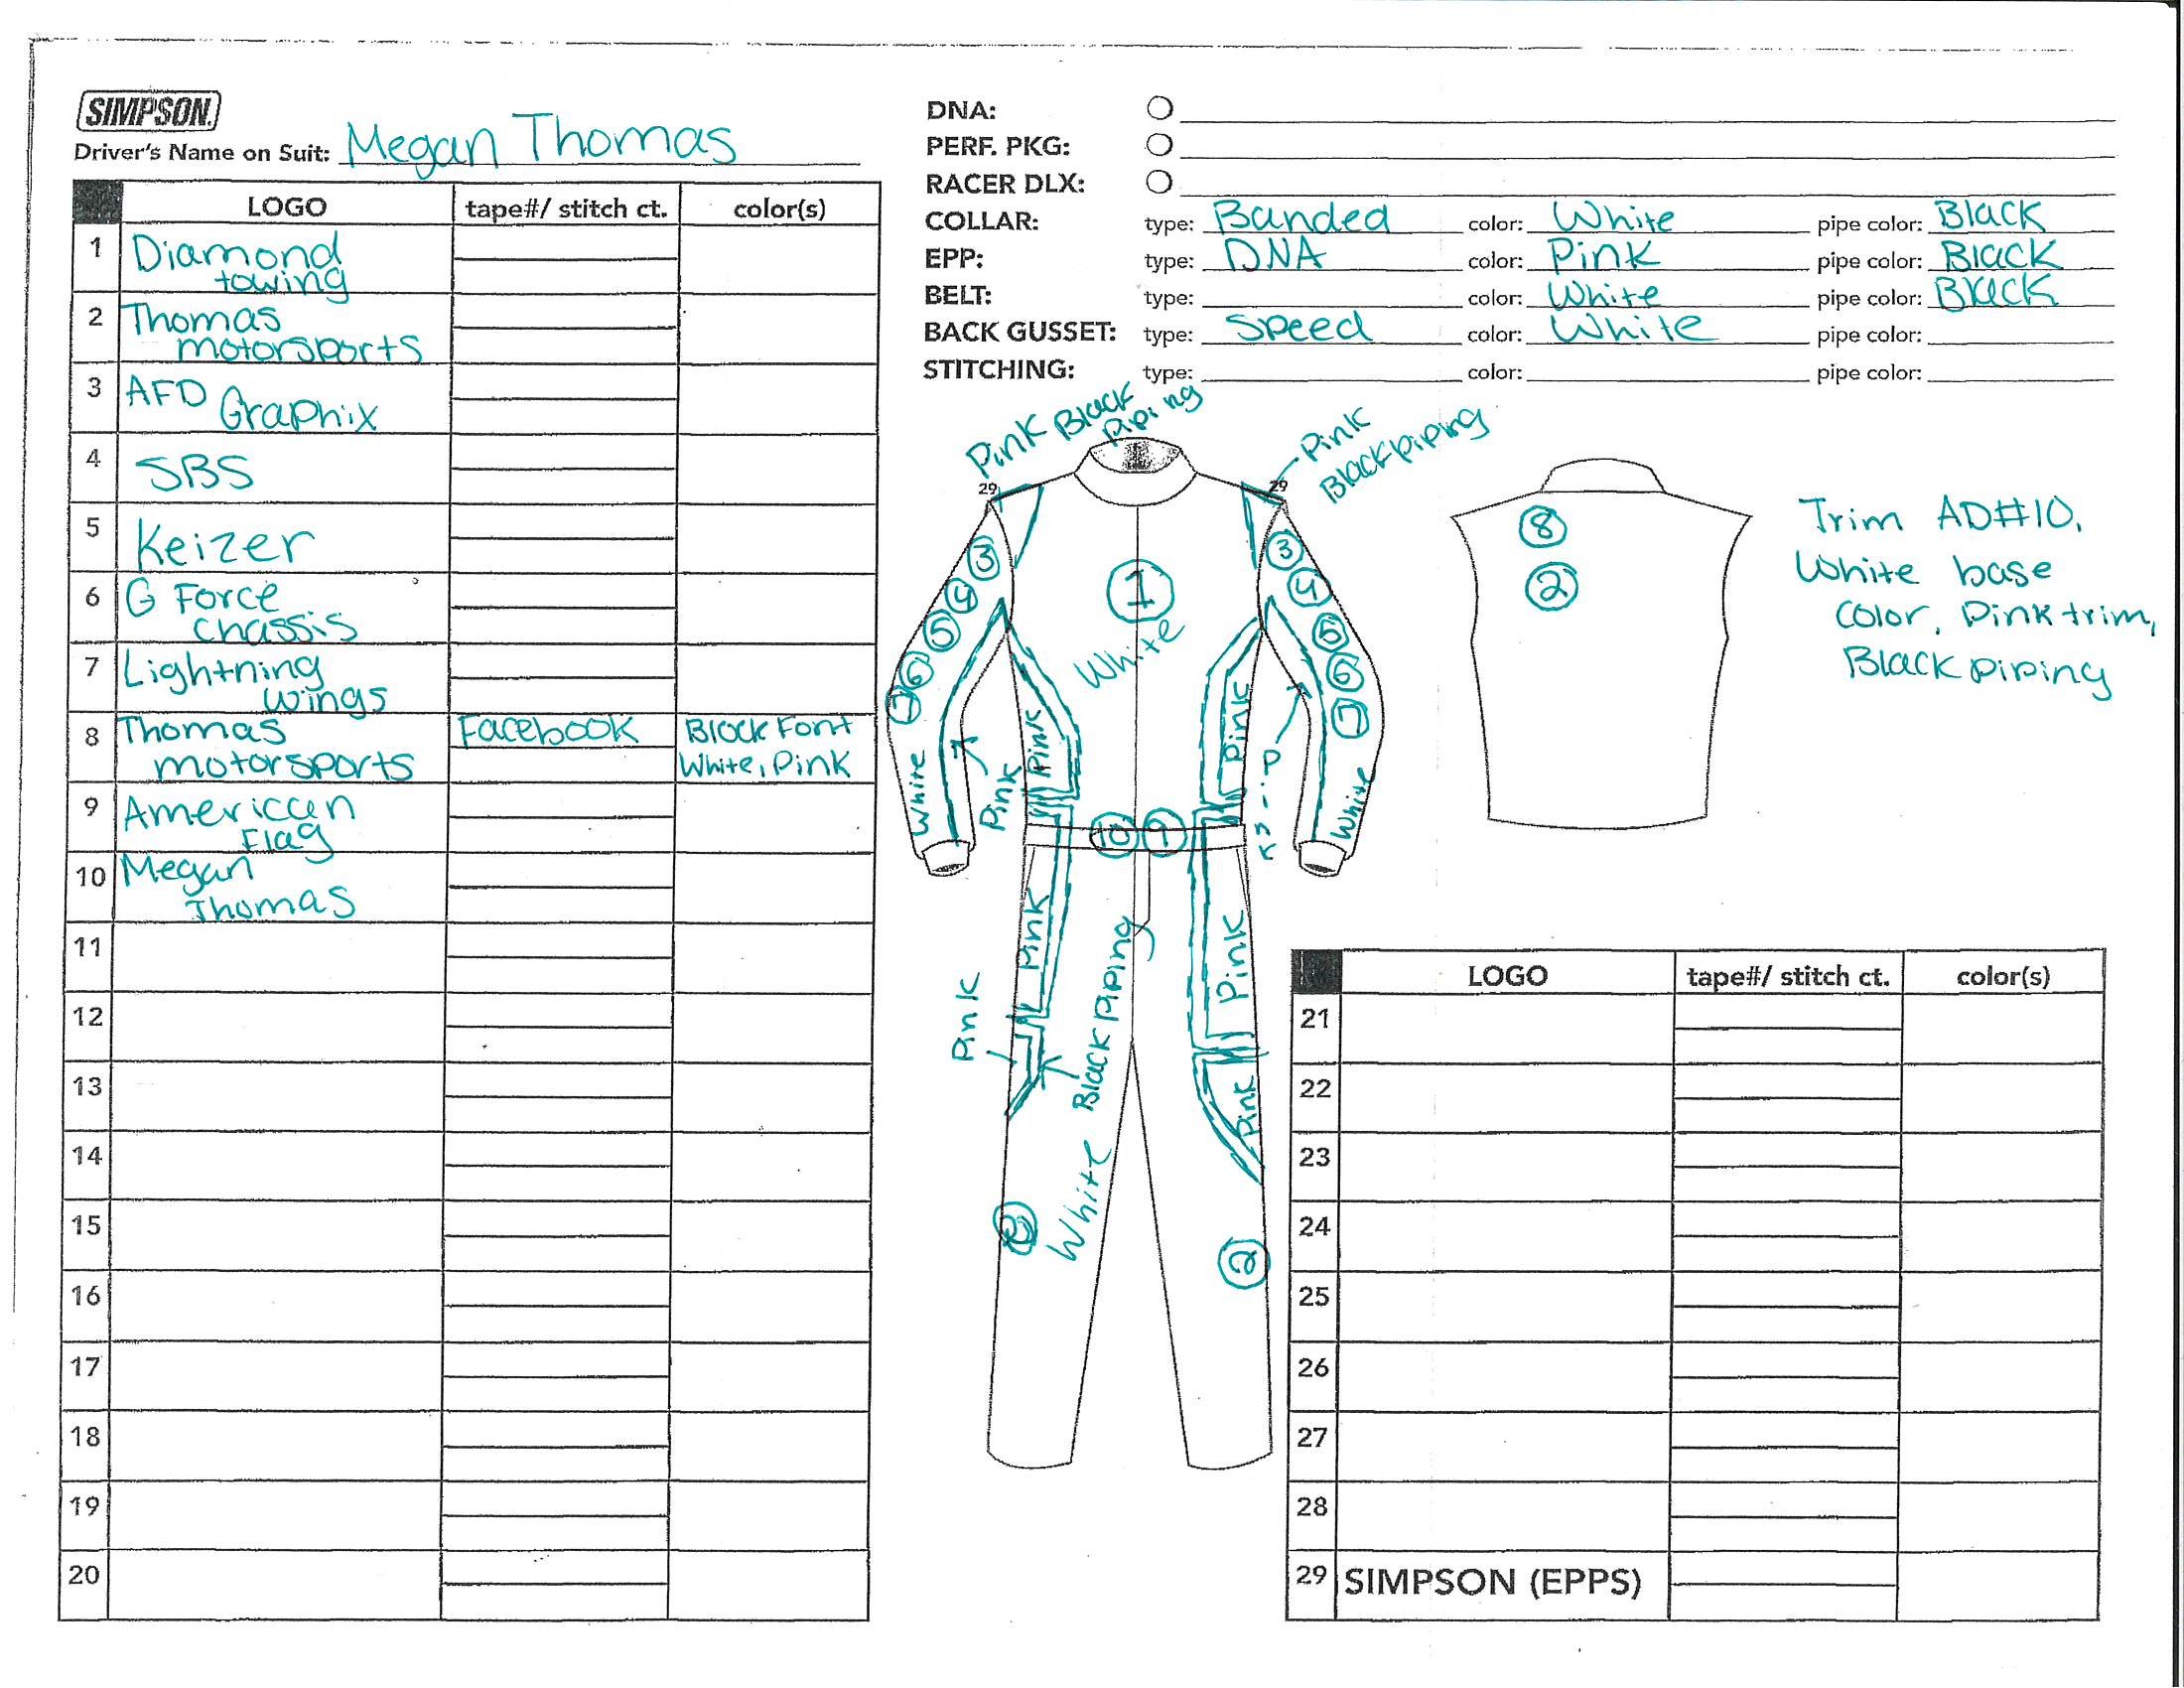 SIMPSON
Driver's Name on Suit: Megan Thomas
LOGO tape#/ stitch ct. color(s)
1 Diamond
towing
2 Thomas
motorsports
3 AFD Graphix
4 SBS
5 Keizer
6 G Force
chassis
7 Lightning
wings
8 Thomas Facebook Black Font
motorsports White, Pink
9 American
Flag
10 Megan
Thomas
11
12
13
14
15
16
17
18
19
20
DNA:
PERF. PKG:
RACER DLX:
COLLAR: type: Banded color: White pipe color: Black
EPP: type: DNA color: Pink pipe color: Black
BELT: type: color: White pipe color: Black
BACK GUSSET: type: Speed color: White pipe color:
STITCHING: type: color: pipe color:
Pink Black
Piping
Pink
Black piping
29 29
3 3
4 4
5 5
6 6
7 7
1
White
Pink
Pink
White
Pink
P
i
n
k
White
10 9
Pink
Pink
Pink
Black Piping
Pink
White
2
2
8
2
Trim AD#10,
White base
color, Pink trim,
Black piping
LOGO tape#/ stitch ct. color(s)
21
22
23
24
25
26
27
28
29 SIMPSON (EPPS)